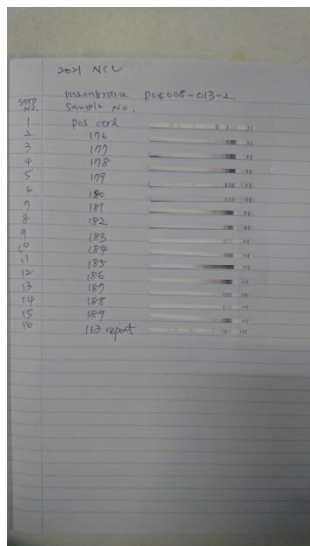 2021 NCU
membrane P04008-013-2
strip No. Sample No.
1 pos cord
2 176
3 177
4 178
5 179
6 180
7 181
8 182
9 183
10 184
11 185
12 186
13 187
14 188
15 189
16 163 repeat